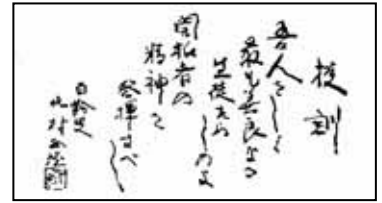 校訓
吾人をして
最も善良なる
生徒たらしめよ
開拓者の
精神を
発揮すべし
北村西望